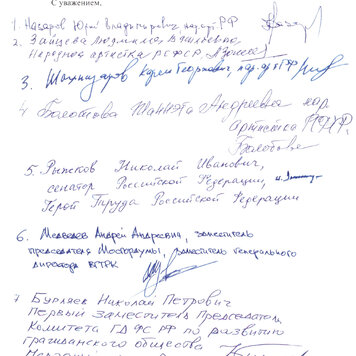 С уважением,
1. Назаров Юрий Владимирович нар. арт. РФ
2. Зайцева Людмила Васильевна
Народная артистка РСФСР
3. Шахназаров Карен Георгиевич, нар. арт. РФ
4 Болотова Жанна Андреевна нар.
артистка РСФСР.
Болотова
5. Рыжков Николай Иванович,
сенатор Российской Федерации,
Герой Труда Российской Федерации
6. Медведев Андрей Андреевич, заместитель
председателя Мосгордумы, заместитель генерального
директора ВГТРК
7 Бурляев Николай Петрович
Первый Заместитель Председателя
Комитета ГД ФС РФ по развитию
гражданского общества